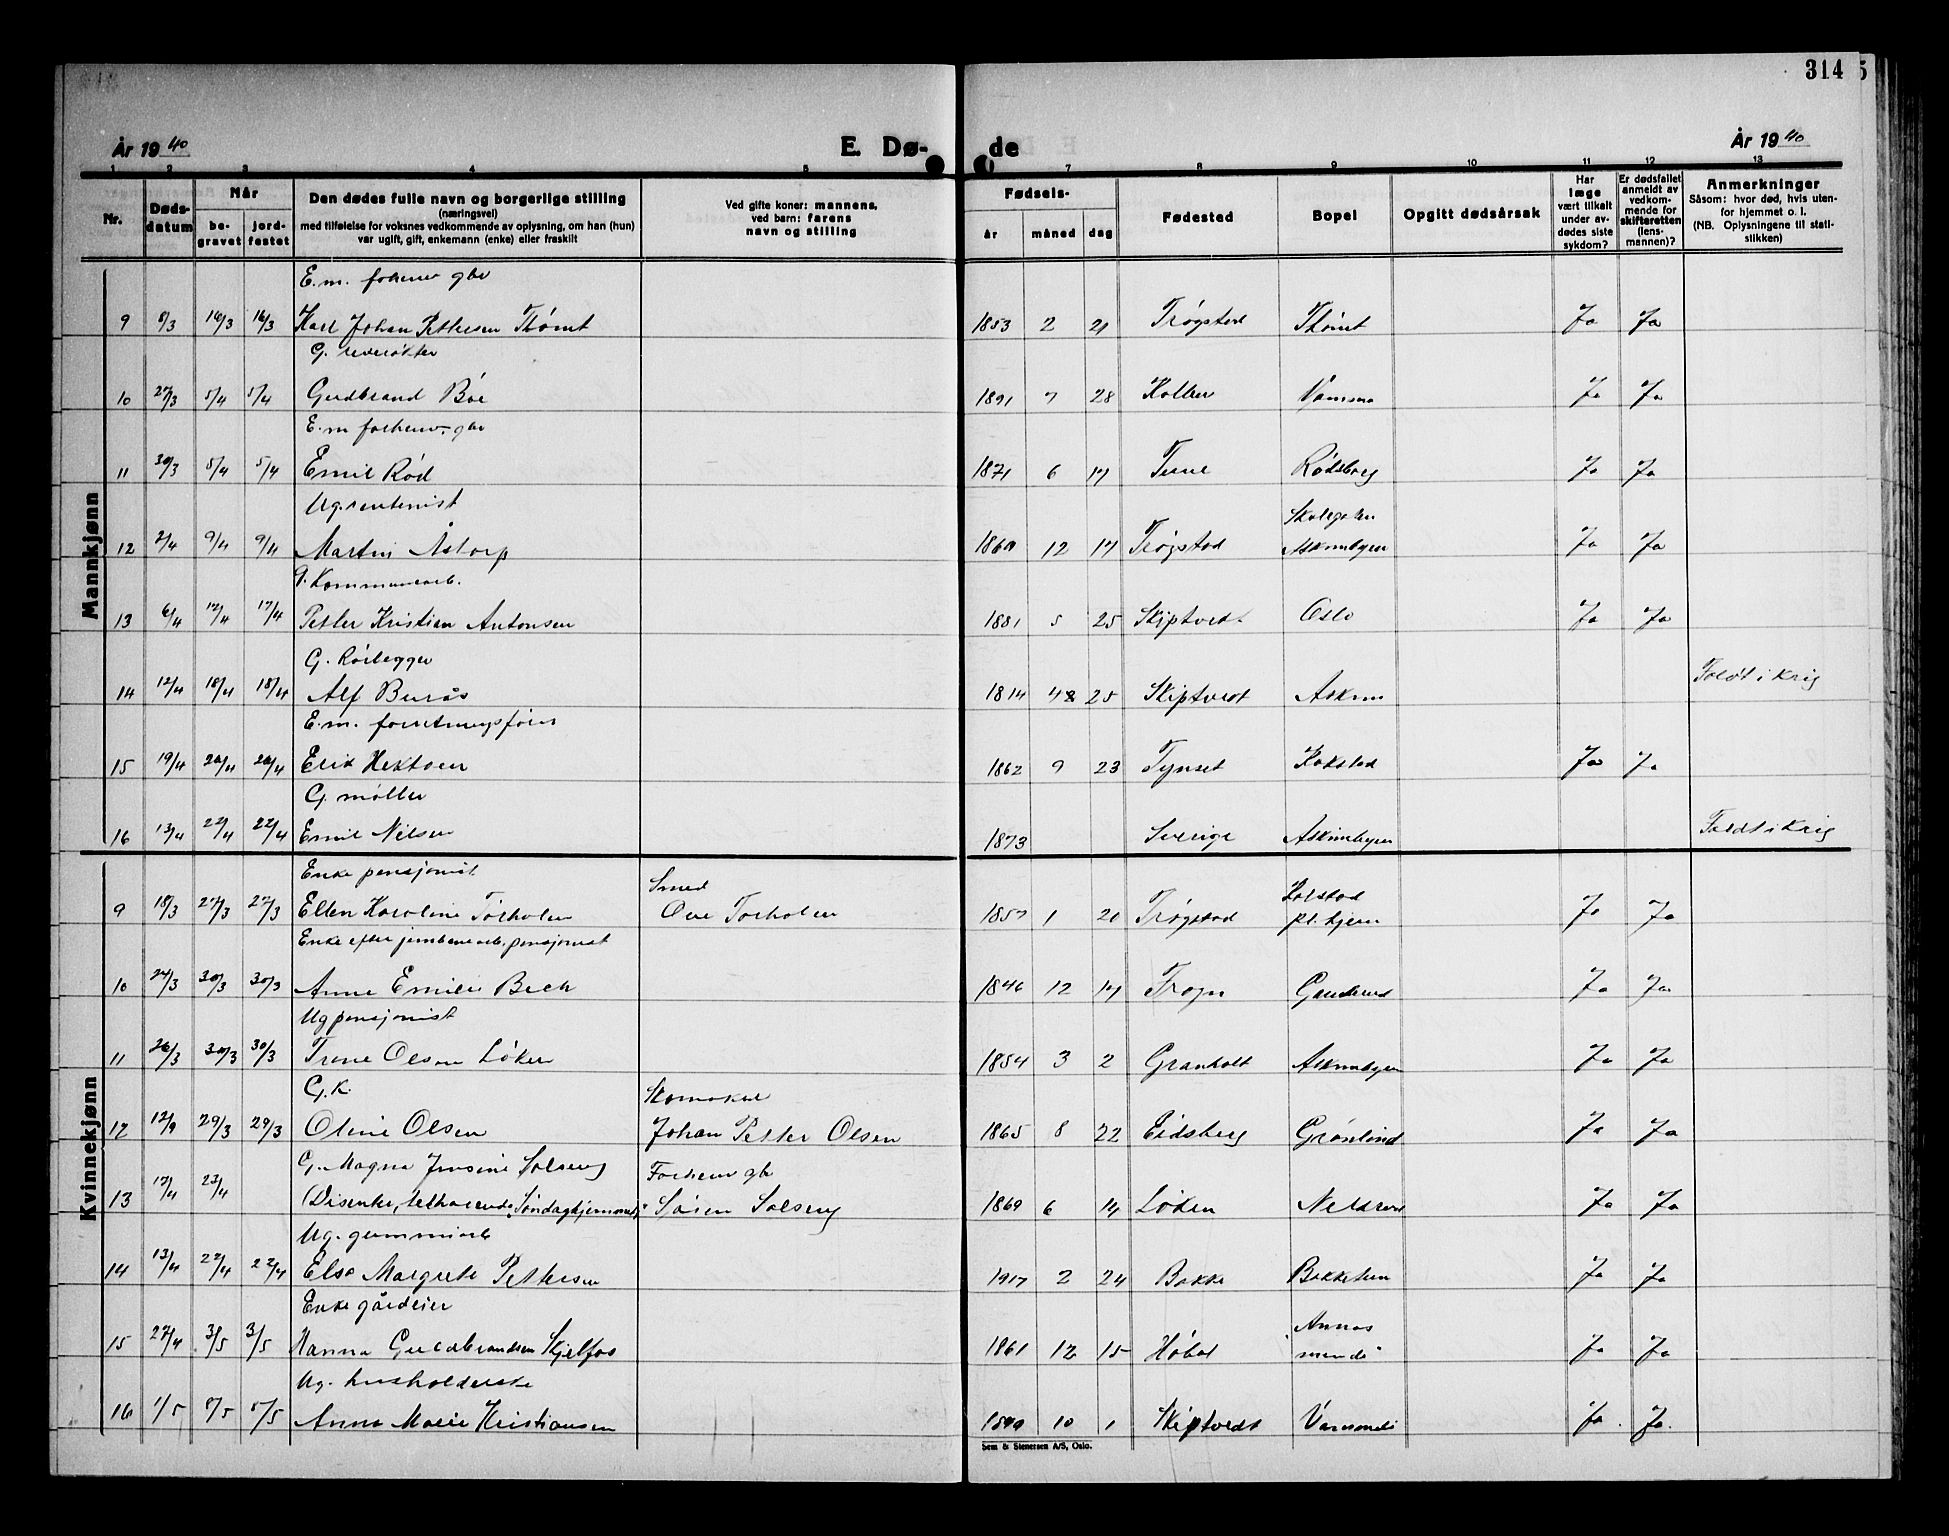 314
5
År 19 40
E. Dø-
de
År 19 40
1 2 3 4 5 7 8 9 10 11 12 13
Nr.
Døds-
datum
Når
be-
gravet
jord-
festet
Den dødes fulle navn og borgerlige stilling
(næringsvei)
med tilføielse for voksnes vedkommende av oplysning, om han (hun)
var ugift, gift, enkemann (enke) eller fraskilt
Ved gifte koner: mannens,
ved barn: farens
navn og stilling
Fødsels-
år måned dag
Fødested
Bopel
Opgitt dødsårsak
Har
læge
vært tilkalt
under av-
dødes siste
sykdom?
Er dødsfallet
anmeldt av
vedkom-
mende for
skifteretten
(lens-
mannen)?
Anmerkninger
Såsom: hvor død, hvis uten-
for hjemmet o. l.
(NB. Oplysningene til stati-
stikken)
Mannkjønn
E.m. forhenv gbr
9 8/3 16/3 16/3 Karl Johan Pettersen Thømt 1853 2 21 Trøgstad Thømt Ja Ja
G. reverøkter
10 27/3 5/4 5/4 Gudbrand Bøe 1891 7 28 Kolbu Vamma Ja Ja
E.m forhenv. gbr
11 30/3 5/4 5/4 Emil Rød 1871 6 17 Tune Rødsberg Ja Ja
Ug. rentenist
Skolegaten
12 2/4 9/4 9/4 Martin Åstorp 12 17 Trøgstad Askimbyen Ja Ja
g. Kommunearb.
13 6/4 17/4 17/4 Petter Kristian Antonsen 1881 5 25 Skiptvedt Oslo Ja Ja
G. Rørlegger
14 12/4 18/4 18/4 Alf Burås 1814 25 Skiptvedt Askim Faldt i krig
E.m. forretningsfører
15 19/4 24/4 24/4 Erik Hektoen 1862 9 23 Tynset Kokstad Ja Ja
G. møller
16 13/4 22/4 22/4 Emil Nilsen 1873 Sverige Askimbyen Faldt i krig
Kvinnekjønn
Enke pensjonist Smed
9 18/3 27/3 27/3 Ellen Karoline Torholen Ove Torholen 1857 1 20 Trøgstad Kolstad
pl. hjem Ja Ja
Enke efter jernbanearb. pensjonist
10 24/3 30/3 30/3 Anne Emilie Bech 1846 12 14 Trogn Ganderud Ja Ja
Ug pensjonist
11 26/3 30/3 30/3 Trine Olsen Løken 1854 3 2 Granholt Askimbyen Ja Ja
G.K. Skomaker
12 29/3 29/3 Oline Olsen Johan Petter Olsen 1865 8 22 Eidsberg Grønlund Ja Ja
G. Magna Jensine Solseng Forhenv gbr
13 17/4 23/4 (Disenke, tilhørende "Søndagshjemmet") Søren Solseng 1869 6 14 Løken Ja Ja
Ug. gummiarb
14 13/4 22/4 22/4 Else Margrete Pettersen 1917 2 24 Bakke Bakketun Ja Ja
Enke gårdeier
Annas
15 27/4 3/5 3/5 Hanna Guldbrandsen Skjelfos 1861 12 15 Hobøl minde Ja Ja
Ug. husholderske
16 1/5 8/5 8/5 Anna Marie Kristiansen 10 1 Skiptvedt Ja. Ja.
Sem & Stenersen A/S, Oslo.